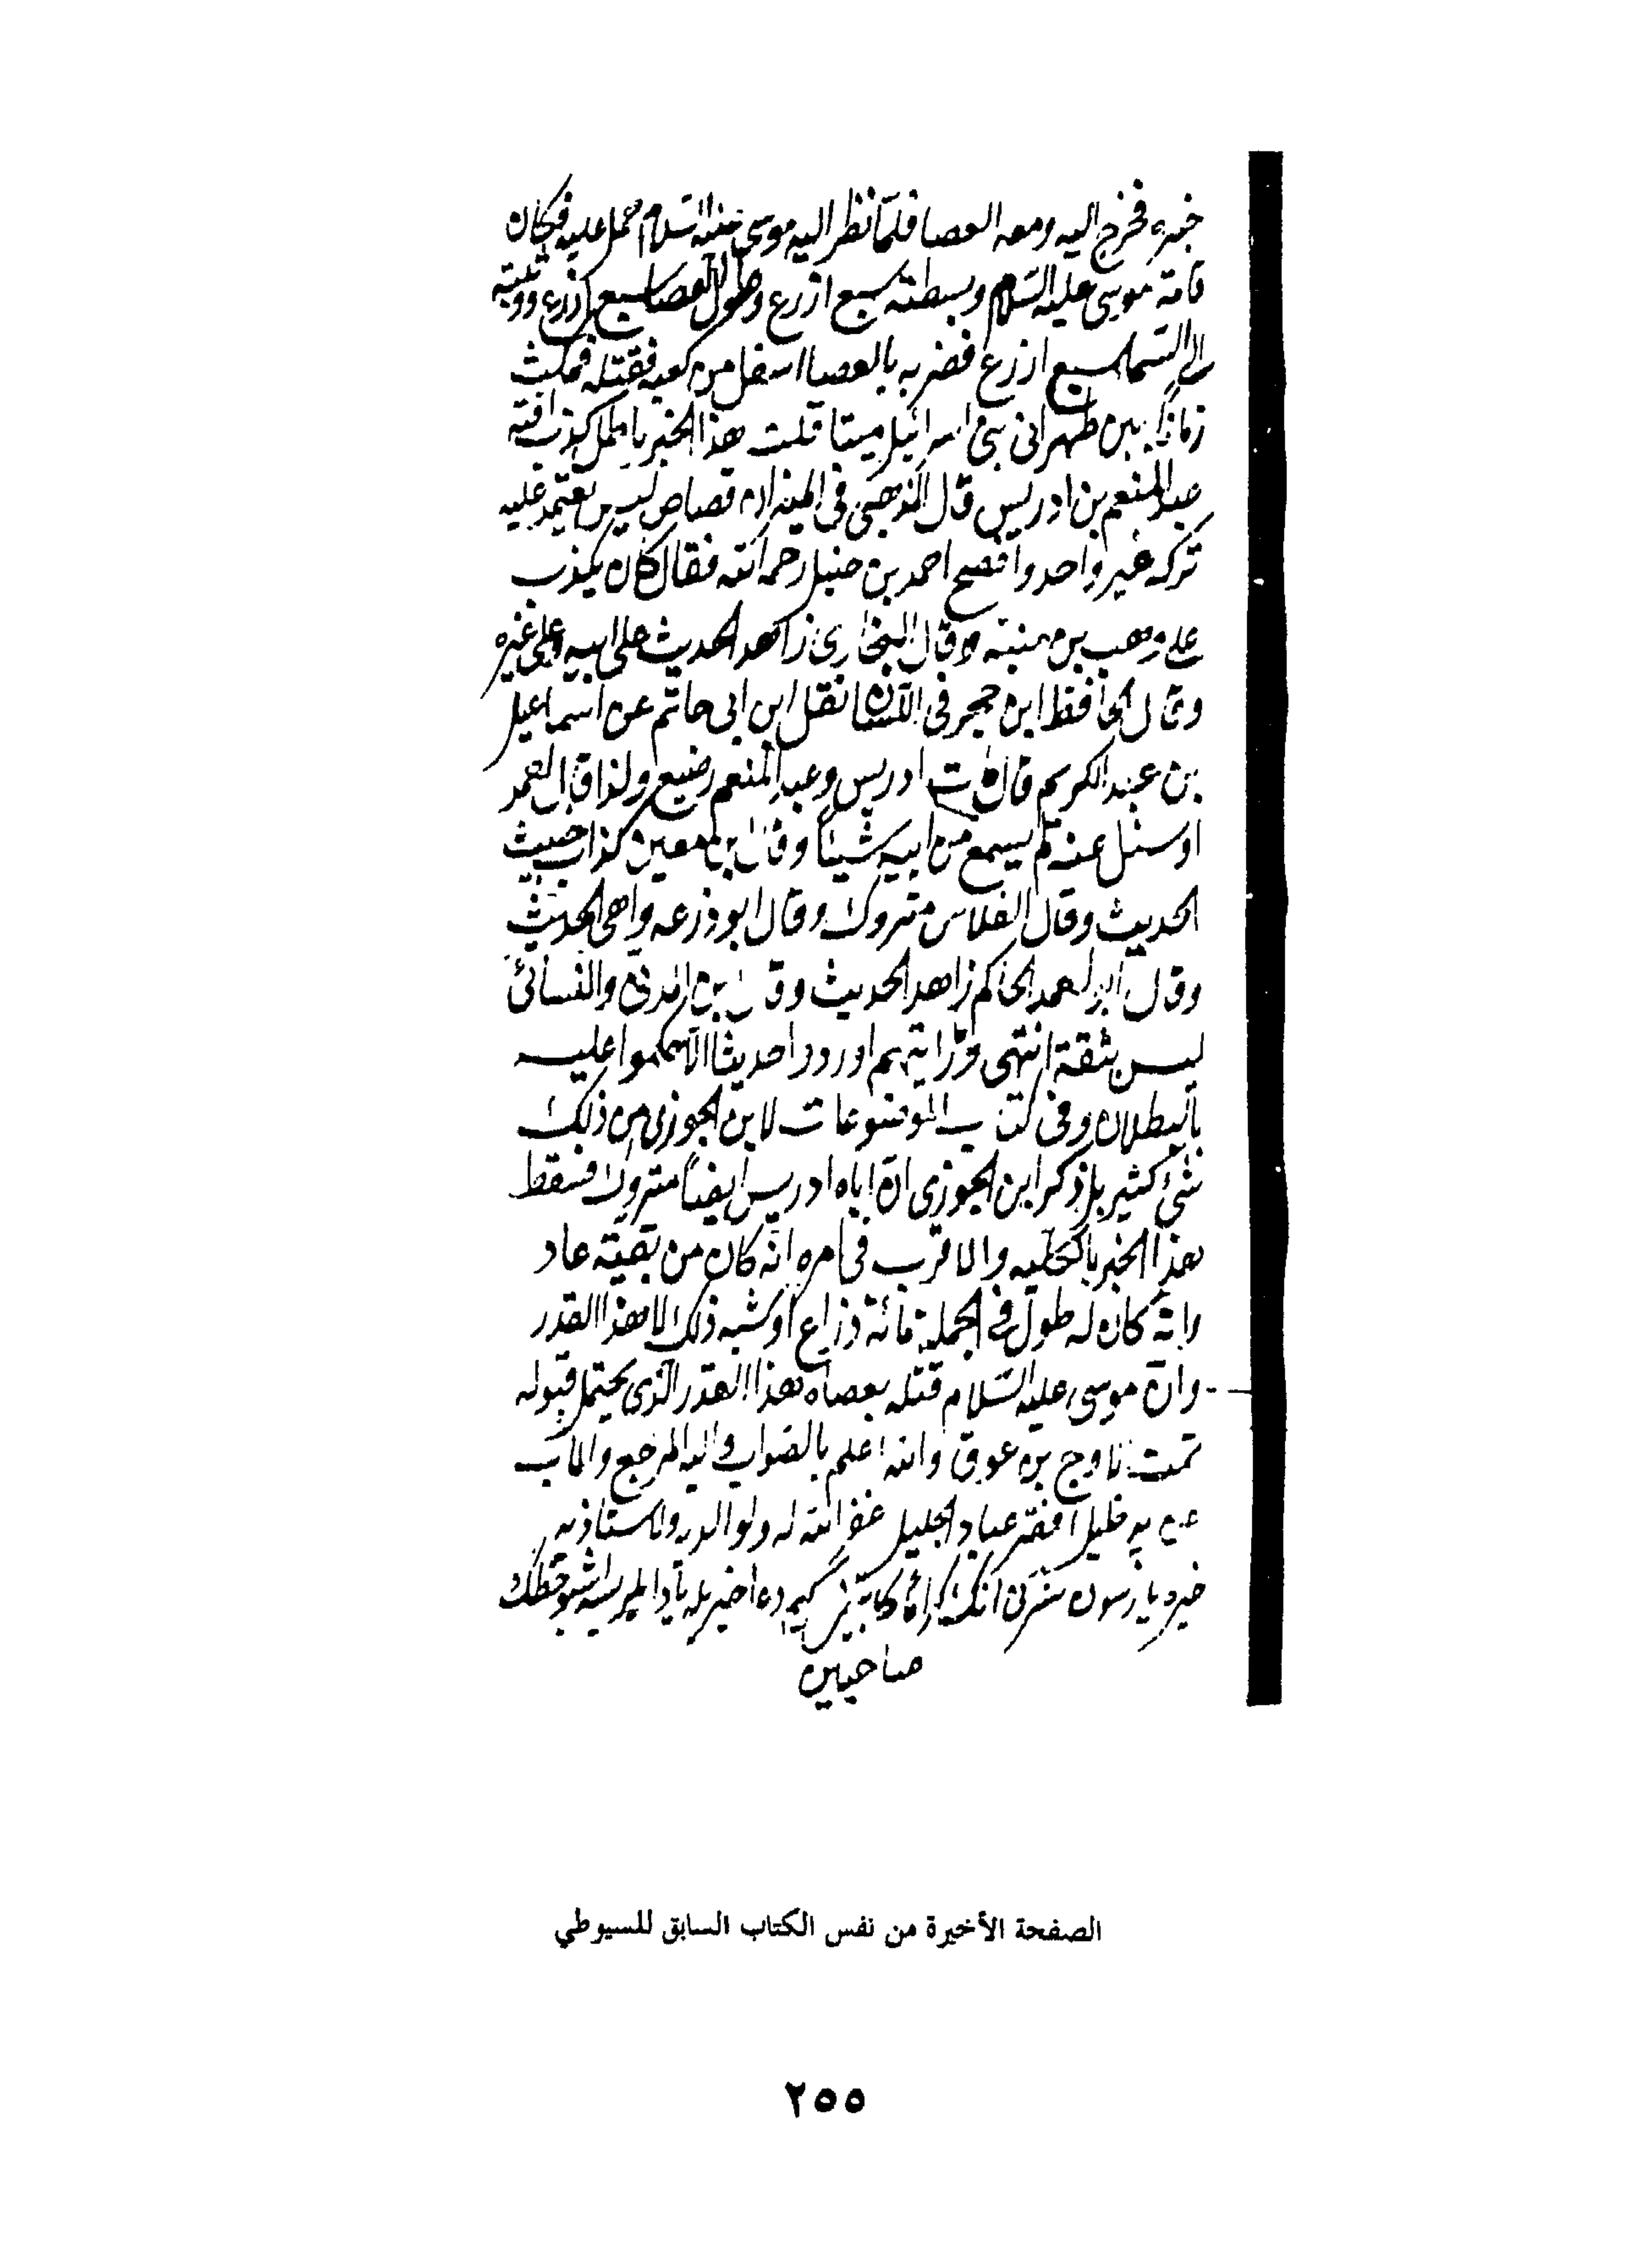 خبره فخرج اليه ومعه العصا فلمّا نظر اليه موسى عليه السّلام حمل عليه فكان
قامة موسى عليه السّلام وبسطته سبع اذرع وطول العصا سبع اذرع ووثبته
الى السّما سبع اذرع فضربه بالعصا اسفل من كعبه فقتله فمكث
زمانًا بين ظهرانى بنى اسرائيل ميتا قلت هذا الخبر باطل كذب افته
عبد المنعم بن ادريس قال الذهبى فى الميزان قصاص ليس يعتمد عليه
تركه غير واحد وافصح احمد بن حنبل رحمه الله فقال كان يكذب
على وهب بن منبه وقال البخارى ذاهب الحديث على ابيه وعلى غيره
وقال الحافظ ابن حجر فى اللسان نقل ابن ابى حاتم عن اسماعيل
بن عبد الكريم قال مات ادريس وعبد المنعم رضيع ولذا قال احمد
اوسئل عنه لم يسمع من ابيه شيئًا وقال ابن معين كذاب خبيث
الحديث وقال الفلاس متروك وقال ابو ذرعه واهى الحديث
وقال ابو احمد الحاكم ذاهب الحديث وقال ابن المدنى والنسائى
ليس بثقة انتهى ورايتهم اوردوا حديثا الا حكموا عليه
بالبطلان وفى كتاب الموضوعات لابن الجوزى من ذلك
شئ كثير بل ذكر ابن الجوزى انّ اباه ادريس ايضًا متروك فسقط
هذا الخبر بالكليه والاقرب فى امره انّه كان من بقيّة عاد
وانّه كان له طول فى الجملة مائة ذراع او شبه ذلك لا هذا القدر
وانّ موسى عليه السّلام قتله بعصاه هذا القدر الّذى يحتمل قبوله
تمت اوج بن عوق والله اعلم بالصّواب واليه المرجع والمآب
خليل افقر عباد الجليل غفر الله له ولوالديه ولاستاذيه
صاحبين
الصفحة الأخيرة من نفس الكتاب السابق للسيوطي
٢٥٥